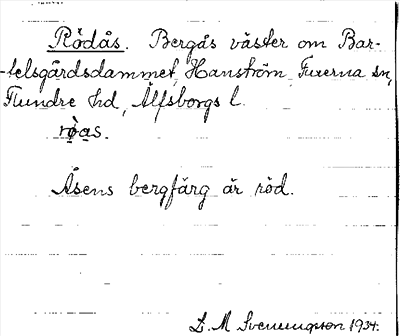 Rödås. Bergås väster om Bar-
telsgårdsdammet, Hanström, Fuxerna sn,
Flundre hd, Älfsborgs l.
Åsens bergfärg är röd.
L. M Svenungsson 1934.